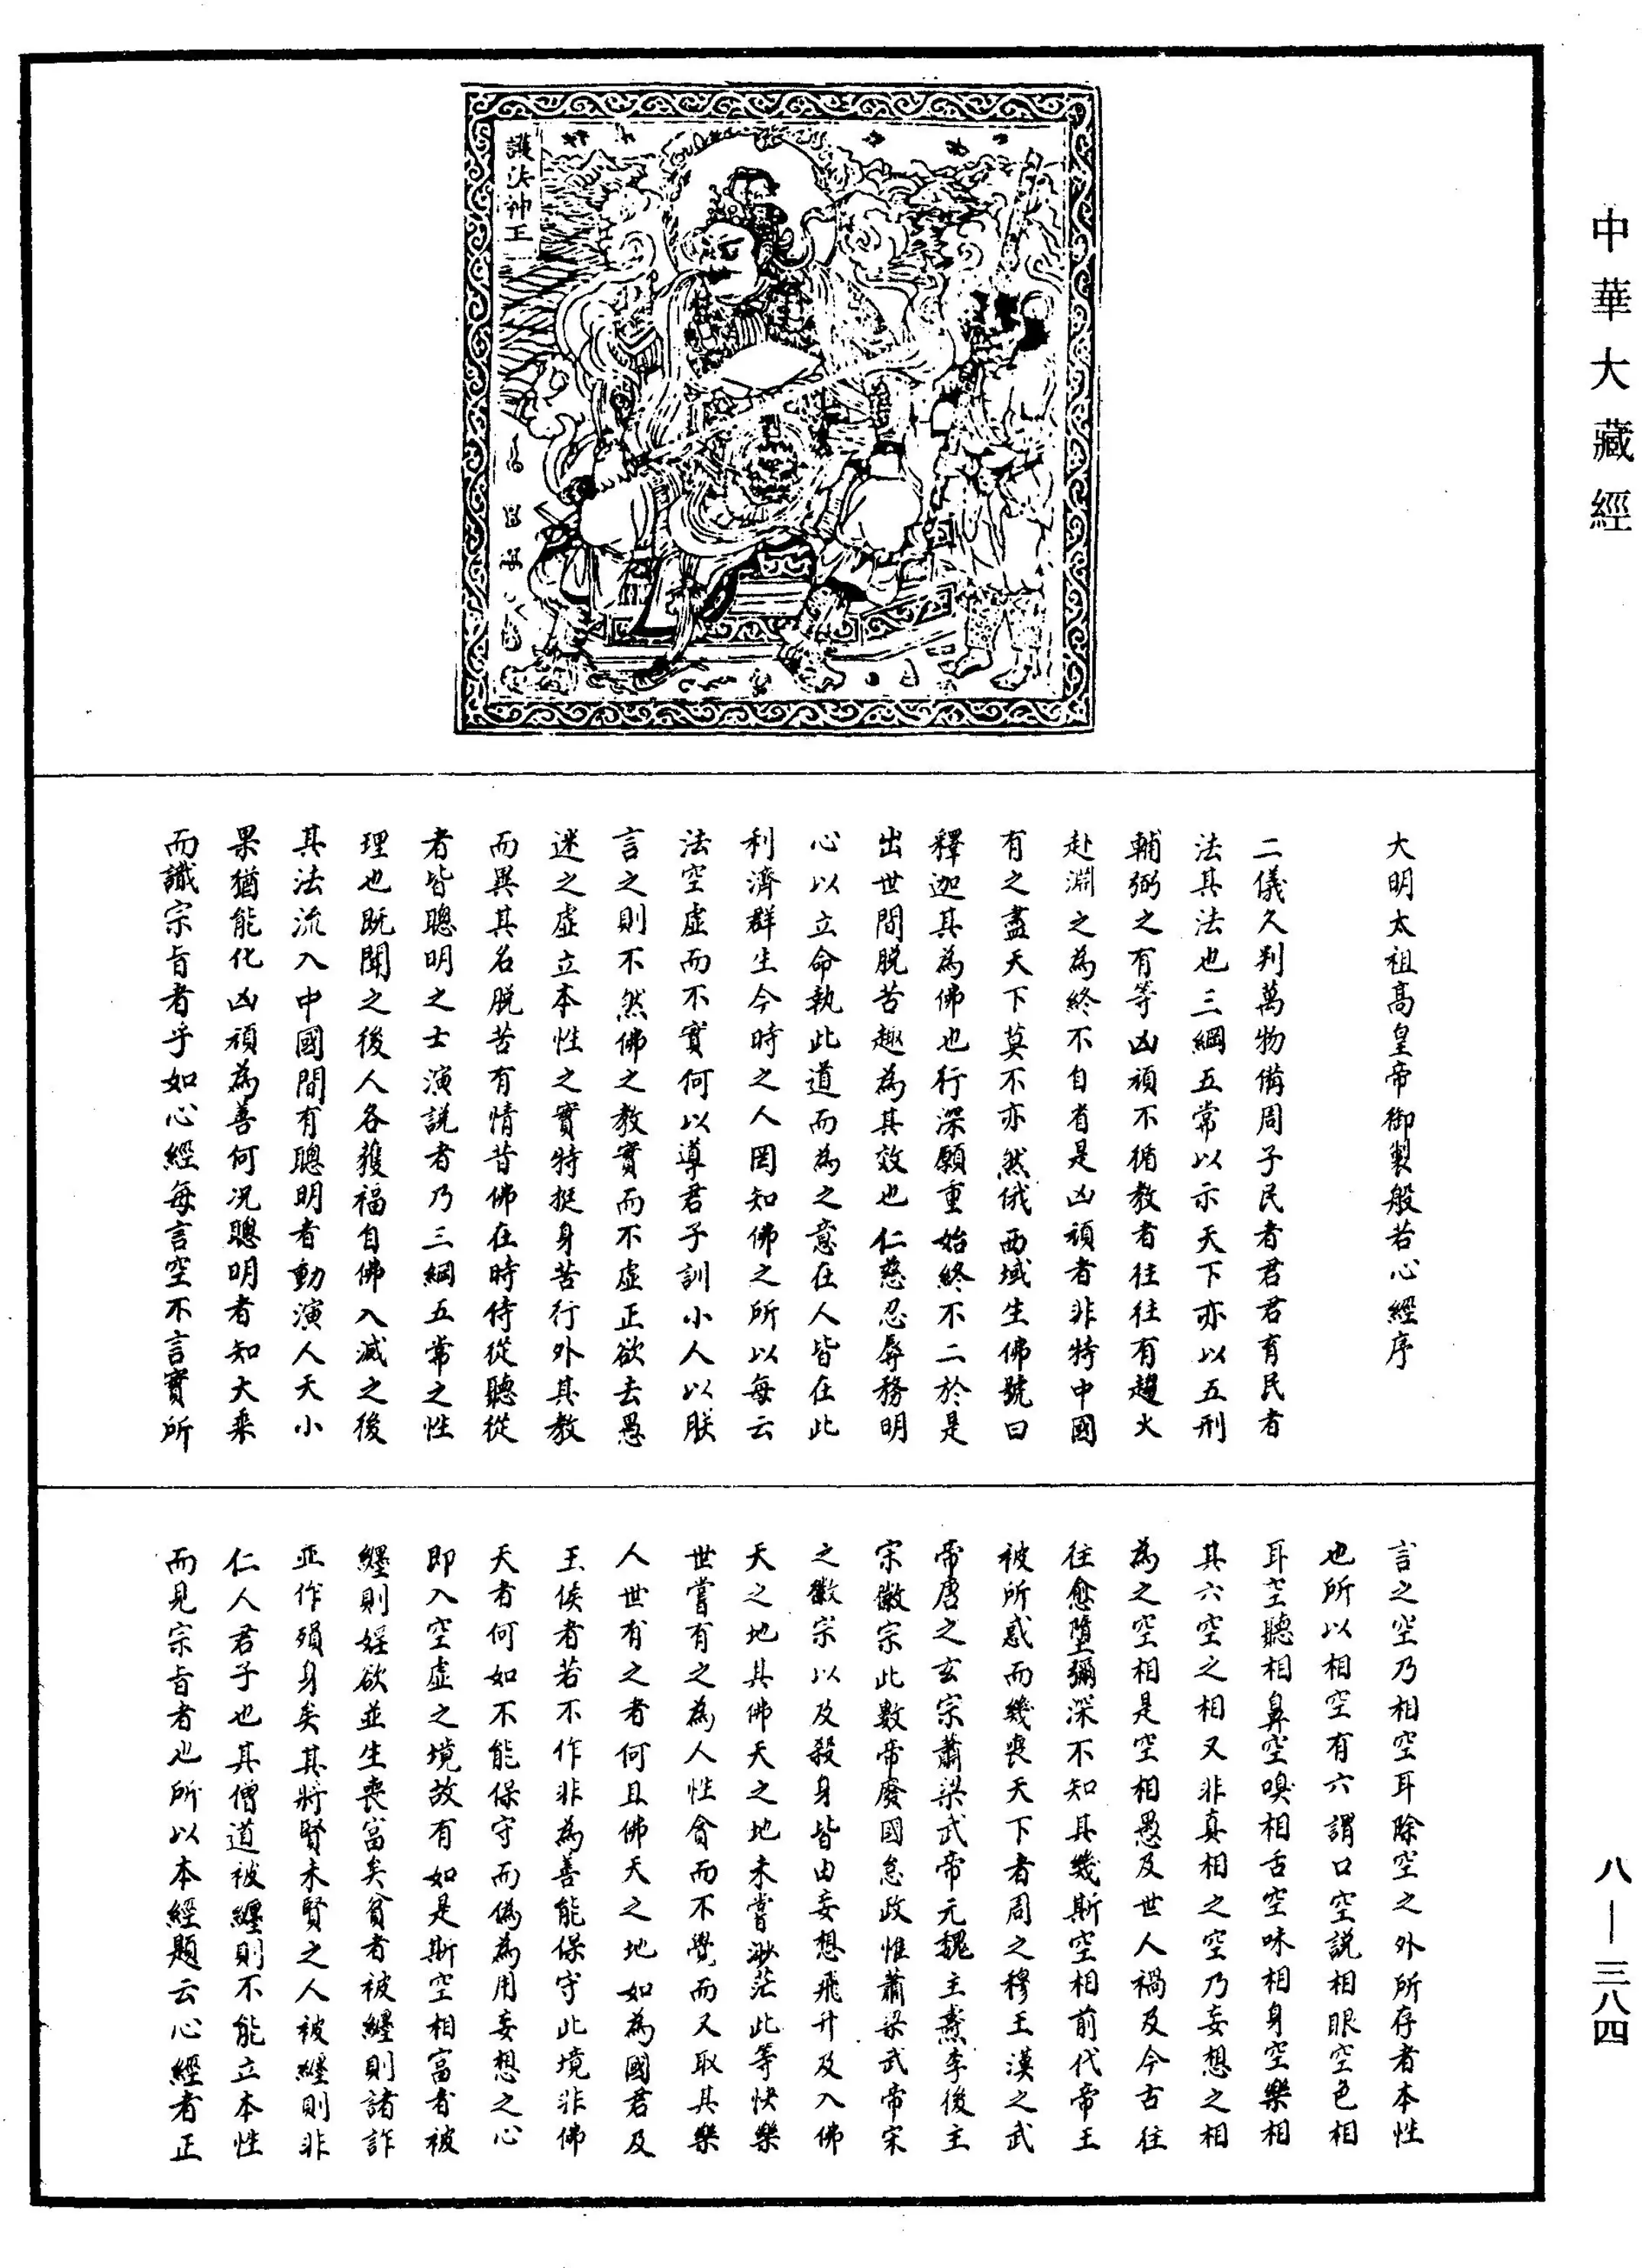 中華大藏經
護法神王
大明太祖高皇帝御製般若心經序
二儀久判萬物備周子民者君君有民者
法其法也三綱五常以示天下亦以五刑
輔弼之有等凶頑不循教者往往有趨火
赴淵之為終不自省是凶頑者非特中國
有之盡天下莫不亦然俄西域生佛號曰
釋迦其為佛也行深願重始終不二於是
出世間脫苦趣為其效也仁慈忍辱務明
心以立命執此道而為之意在人皆在此
利濟群生今時之人罔知佛之所以每云
法空虛而不實何以導君子訓小人以朕
言之則不然佛之教實而不虛正欲去愚
迷之虛立本性之實特挺身苦行外其教
而異其名脫苦有情昔佛在時侍從聽從
者皆聰明之士演說者乃三綱五常之性
理也既聞之後人各獲福自佛入滅之後
其法流入中國間有聰明者動演人天小
果猶能化凶頑為善何況聰明者知大乘
而識宗旨者乎如心經每言空不言實所
言之空乃相空耳除空之外所存者本性
也所以相空有六謂口空說相眼空色相
耳空聽相鼻空嗅相舌空味相身空樂相
其六空之相又非真相之空乃妄想之相
為之空相是空相愚及世人禍及今古往
往愈墮彌深不知其幾斯空相前代帝王
被所惑而幾喪天下者周之穆王漢之武
帝唐之玄宗蕭梁武帝元魏主燾李後主
宋徽宗此數帝廢國怠政惟蕭梁武帝宋
之徽宗以及殺身皆由妄想飛升及入佛
天之地其佛天之地未嘗渺茫此等快樂
世嘗有之為人性貪而不覺而又取其樂
人世有之者何且佛天之地如為國君及
王侯者若不作非為善能保守此境非佛
天者何如不能保守而偽為用妄想之心
即入空虛之境故有如是斯空相富者被
纏則婬欲並生喪富矣貧者被纏則諸詐
並作殞身矣其將賢未賢之人被纏則非
仁人君子也其僧道被纏則不能立本性
而見宗旨者也所以本經題云心經者正
八—三八四